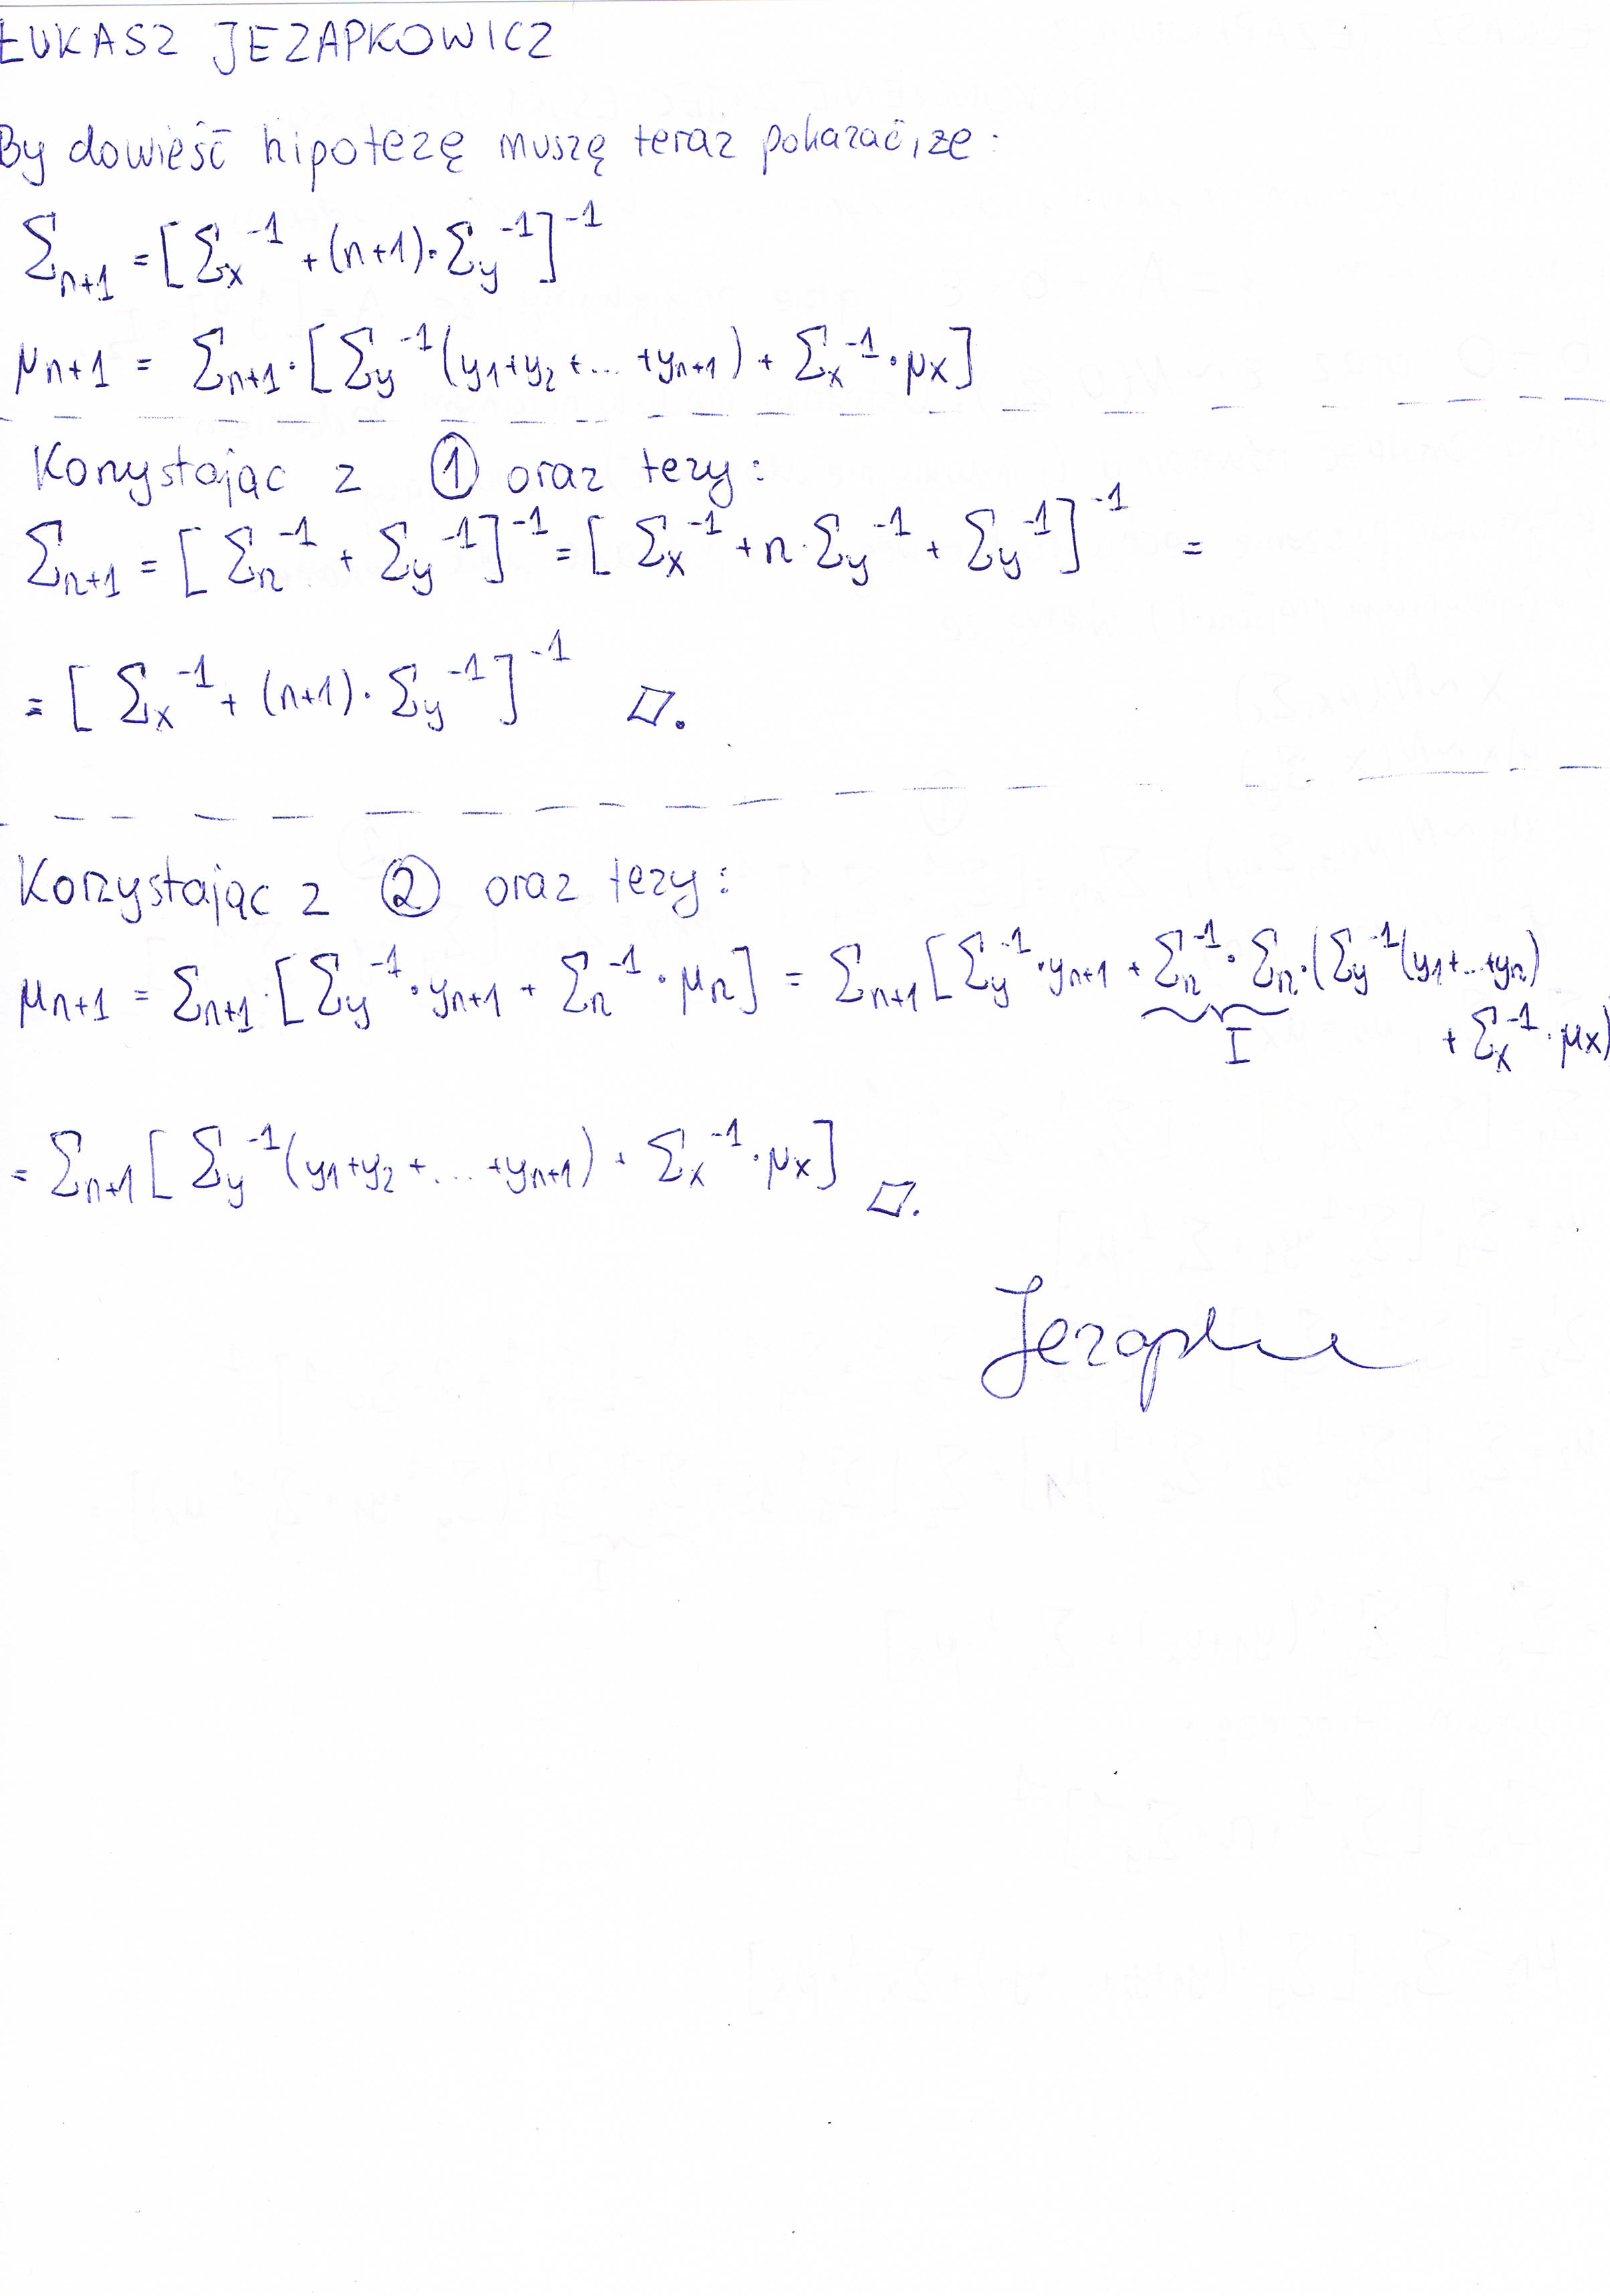 ŁUKASZ JEZAPKOWICZ
By dowieść hipotezę muszę teraz pokazać, że:
Σ_{n+1} = [Σ_x^{-1} + (n+1)·Σ_y^{-1}]^{-1}
μ_{n+1} = Σ_{n+1}·[Σ_y^{-1}(y_1+y_2+...+y_{n+1}) + Σ_x^{-1}·μ_x]
Korzystając z ① oraz tezy:
Σ_{n+1} = [Σ_n^{-1} + Σ_y^{-1}]^{-1} = [Σ_x^{-1} + n·Σ_y^{-1} + Σ_y^{-1}]^{-1} =
= [Σ_x^{-1} + (n+1)·Σ_y^{-1}]^{-1} □.
Korzystając z ② oraz tezy:
μ_{n+1} = Σ_{n+1}·[Σ_y^{-1}·y_{n+1} + Σ_n^{-1}·μ_n] = Σ_{n+1}[Σ_y^{-1}·y_{n+1} + Σ_n^{-1}·Σ_n·(Σ_y^{-1}(y_1+...+y_n)
I
+ Σ_x^{-1}·μ_x)
= Σ_{n+1}[Σ_y^{-1}(y_1+y_2+...+y_{n+1}) + Σ_x^{-1}·μ_x] □.